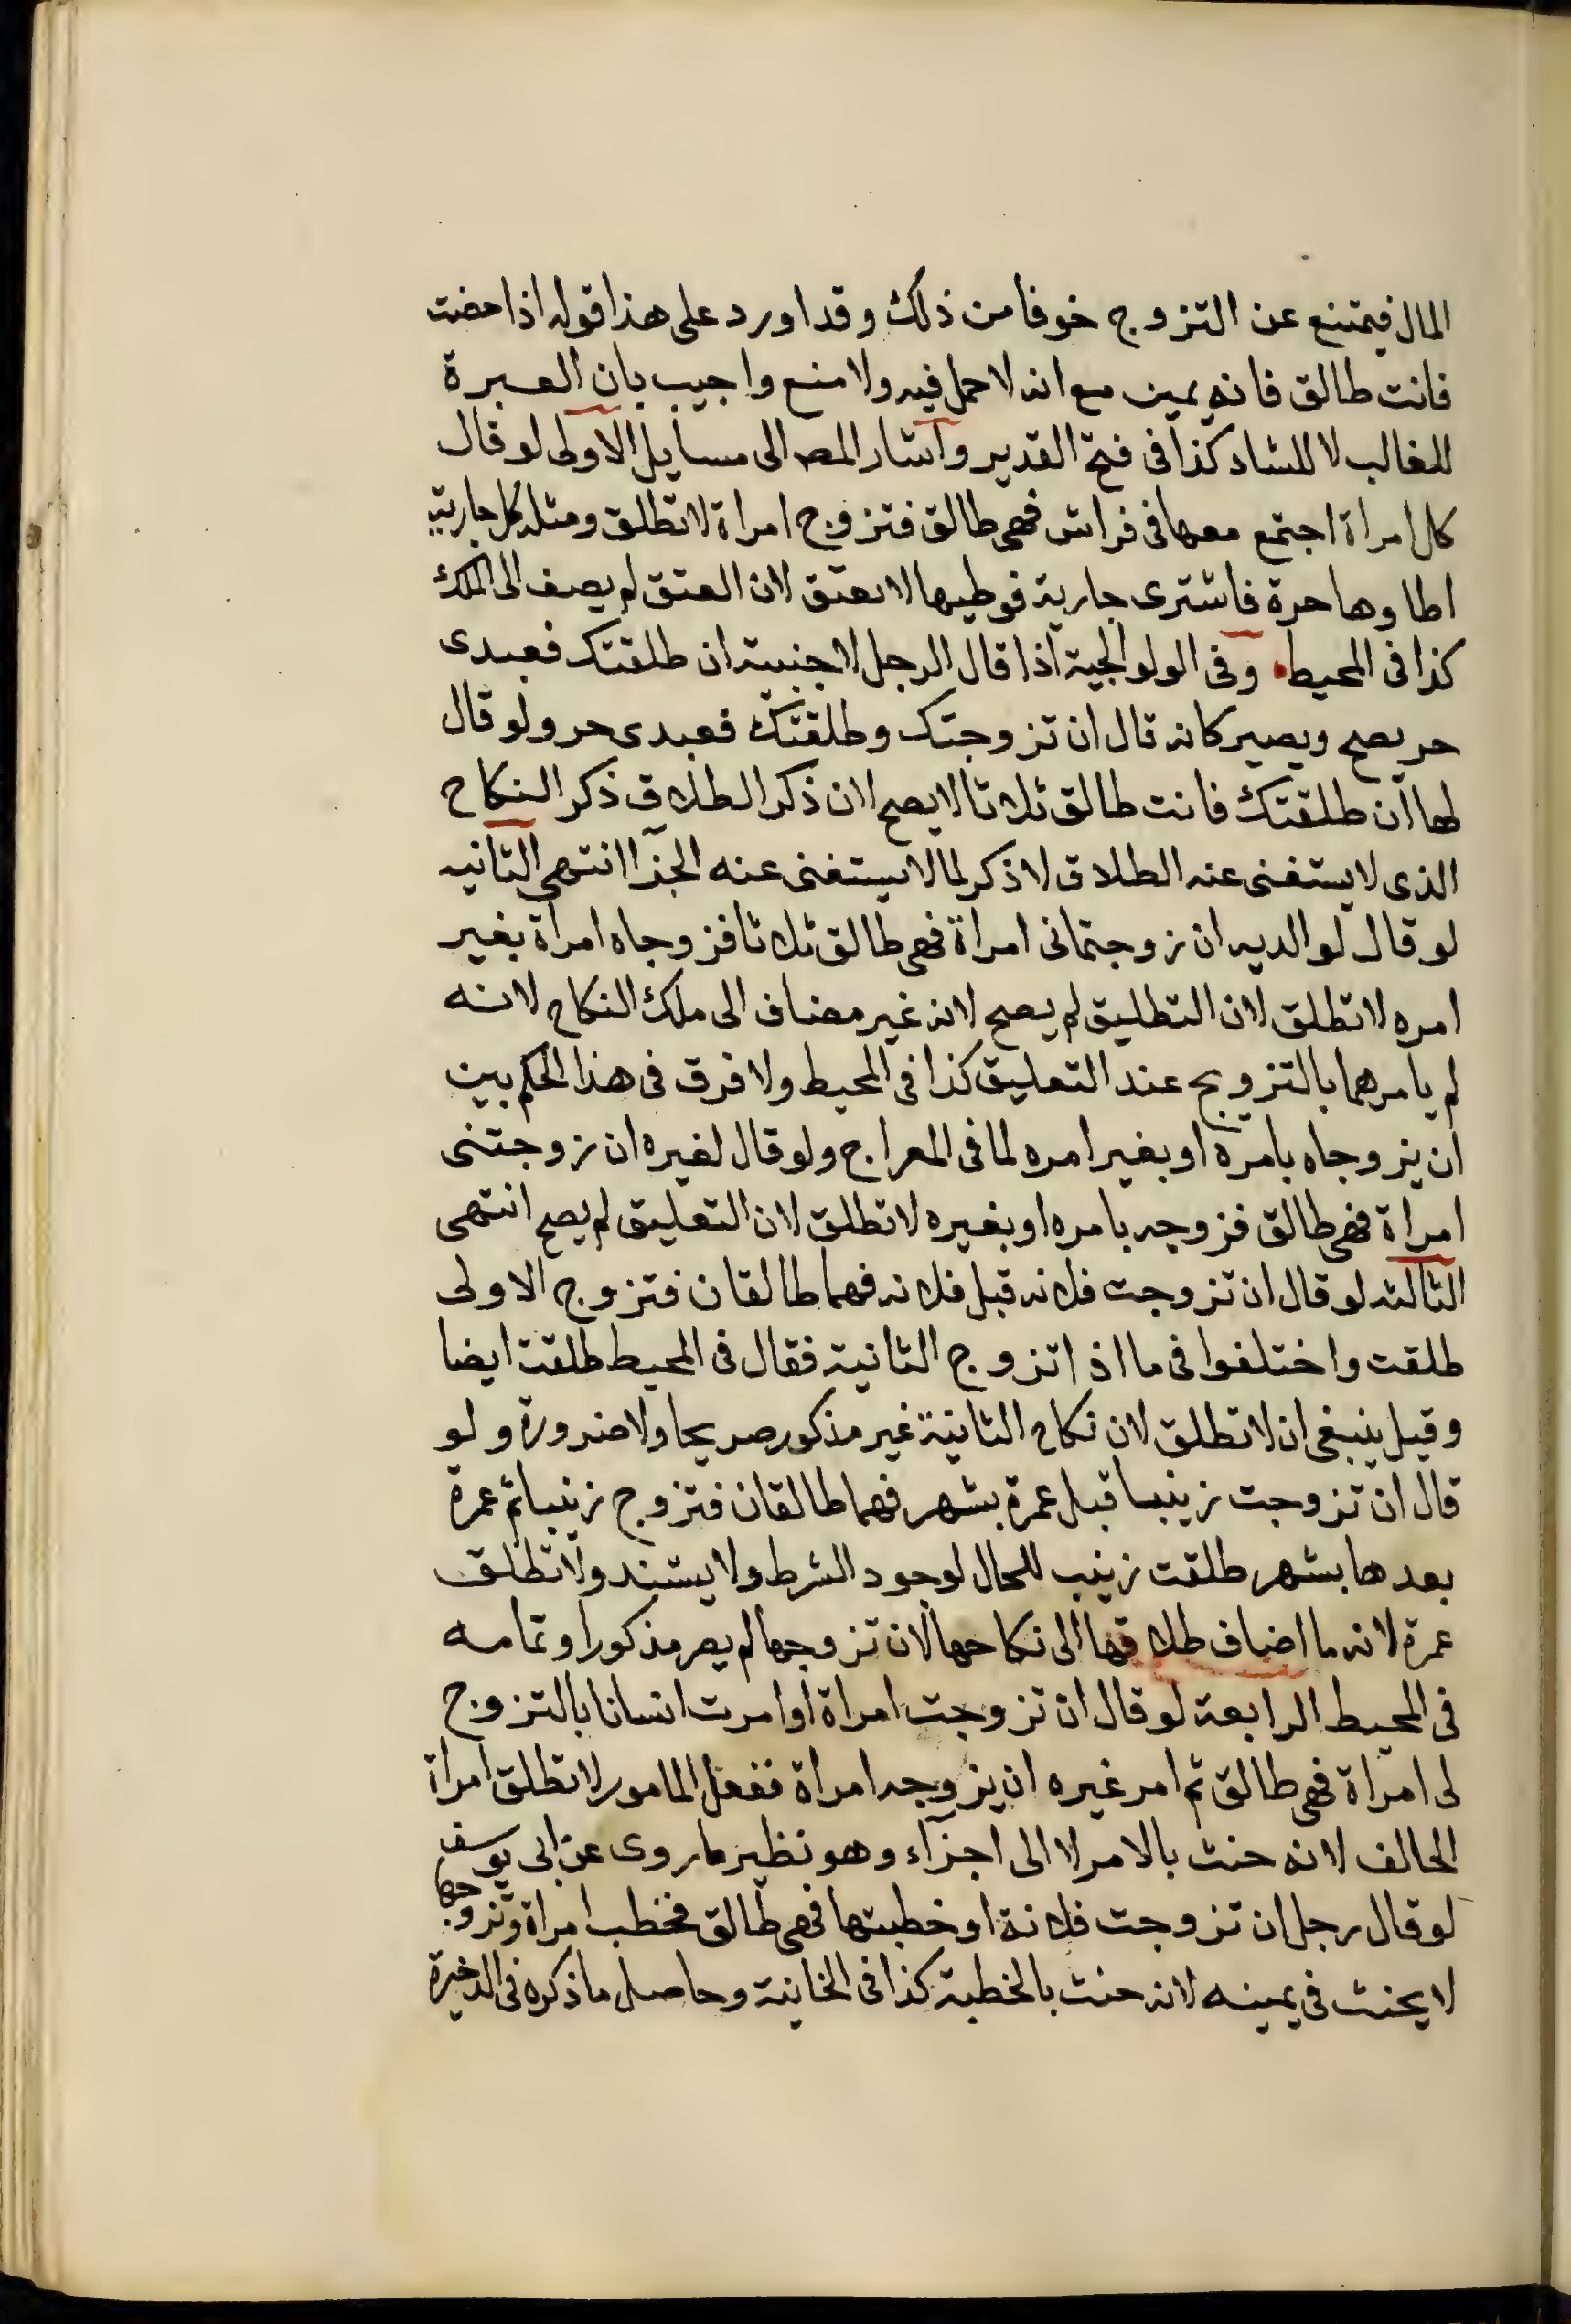 المال فيمتنع عن التزوج خوفا من ذلك وقد اورد على هذا قوله اذا حضت
فانت طالق فانه يمين مع انه لا حمل فيه ولا منع واجيب بان العبرة
للغالب لا للشاد كذا فى فتح القدير واشار المصـ الى مسايل الاولى لو قال
كل امراة اجتمع معها فى فراش فهى طالق فتزوج امراة لا تطلق ومثله كل جارية
اطاوها حرة فاشترى جارية فوطيها لا تعتق لان العتق لم يضف الى الملك
كذا فى المحيط وفى الولوالجية اذا قال الرجل لاجنبية ان طلقتك فعبدى
حر يصح ويصير كانه قال ان تزوجتك وطلقتك فعبدى حر ولو قال
لها ان طلقتك فانت طالق ثلاثا لا يصح لان ذكر الطلاق ذكر النكاح
الذى لا يستغنى عنه الطلاق لا ذكر لما لا يستغنى عنه الجزا انتهى الثانيه
لو قال لوالديه ان زوجتمانى امراة فهى طالق ثلاثا فزوجاه امراة بغير
امره لا تطلق لان التطليق لم يصح لانه غير مضاف الى ملك النكاح لانه
لم يامرهما بالتزويج عند التعليق كذا فى المحيط ولا فرق فى هذا الحكم بين
ان يزوجاه بامره او بغير امره لما فى المعراج ولو قال لغيره ان زوجتنى
امراة فهى طالق فزوجه بامره او بغيره لا تطلق لان التعليق لم يصح انتهى
الثالثه لو قال ان تزوجت فلانه قبل فلانه فهما طالقان فتزوج الاولى
طلقت واختلفوا فى ما اذا تزوج الثانية فقال فى المحيط طلقت ايضا
وقيل ينبغى ان لا تطلق لان نكاح الثانية غير مذكور صريحا ولا ضرورة ولو
قال ان تزوجت زينبا قبل عمرة بشهر فهما طالقان فتزوج زينبا ثم عمرة
بعدها بشهر طلقت زينب للحال لوجود الشرط ولا يستند ولا تطلق
عمرة لانه ما اضاف طلاقها الى نكاحها لان تزوجها لم يصر مذكورا وتمامه
فى المحيط الرابعة لو قال ان تزوجت امراة او امرت انسانا بالتزوج
لى امراة فهى طالق ثم امر غيره ان يزوجه امراة ففعل المامور لا تطلق امراة
الحالف لانه حنث بالامر لا الى اجزآء وهو نظير ما روى عن ابى يوسف
لو قال رجل ان تزوجت فلانة او خطبتها فهى طالق فخطب امراة وتزوجها
لا يحنث فى يمينه لانه حنث بالخطبة كذا فى الخانية وحاصل ما ذكره فى الذخيرة